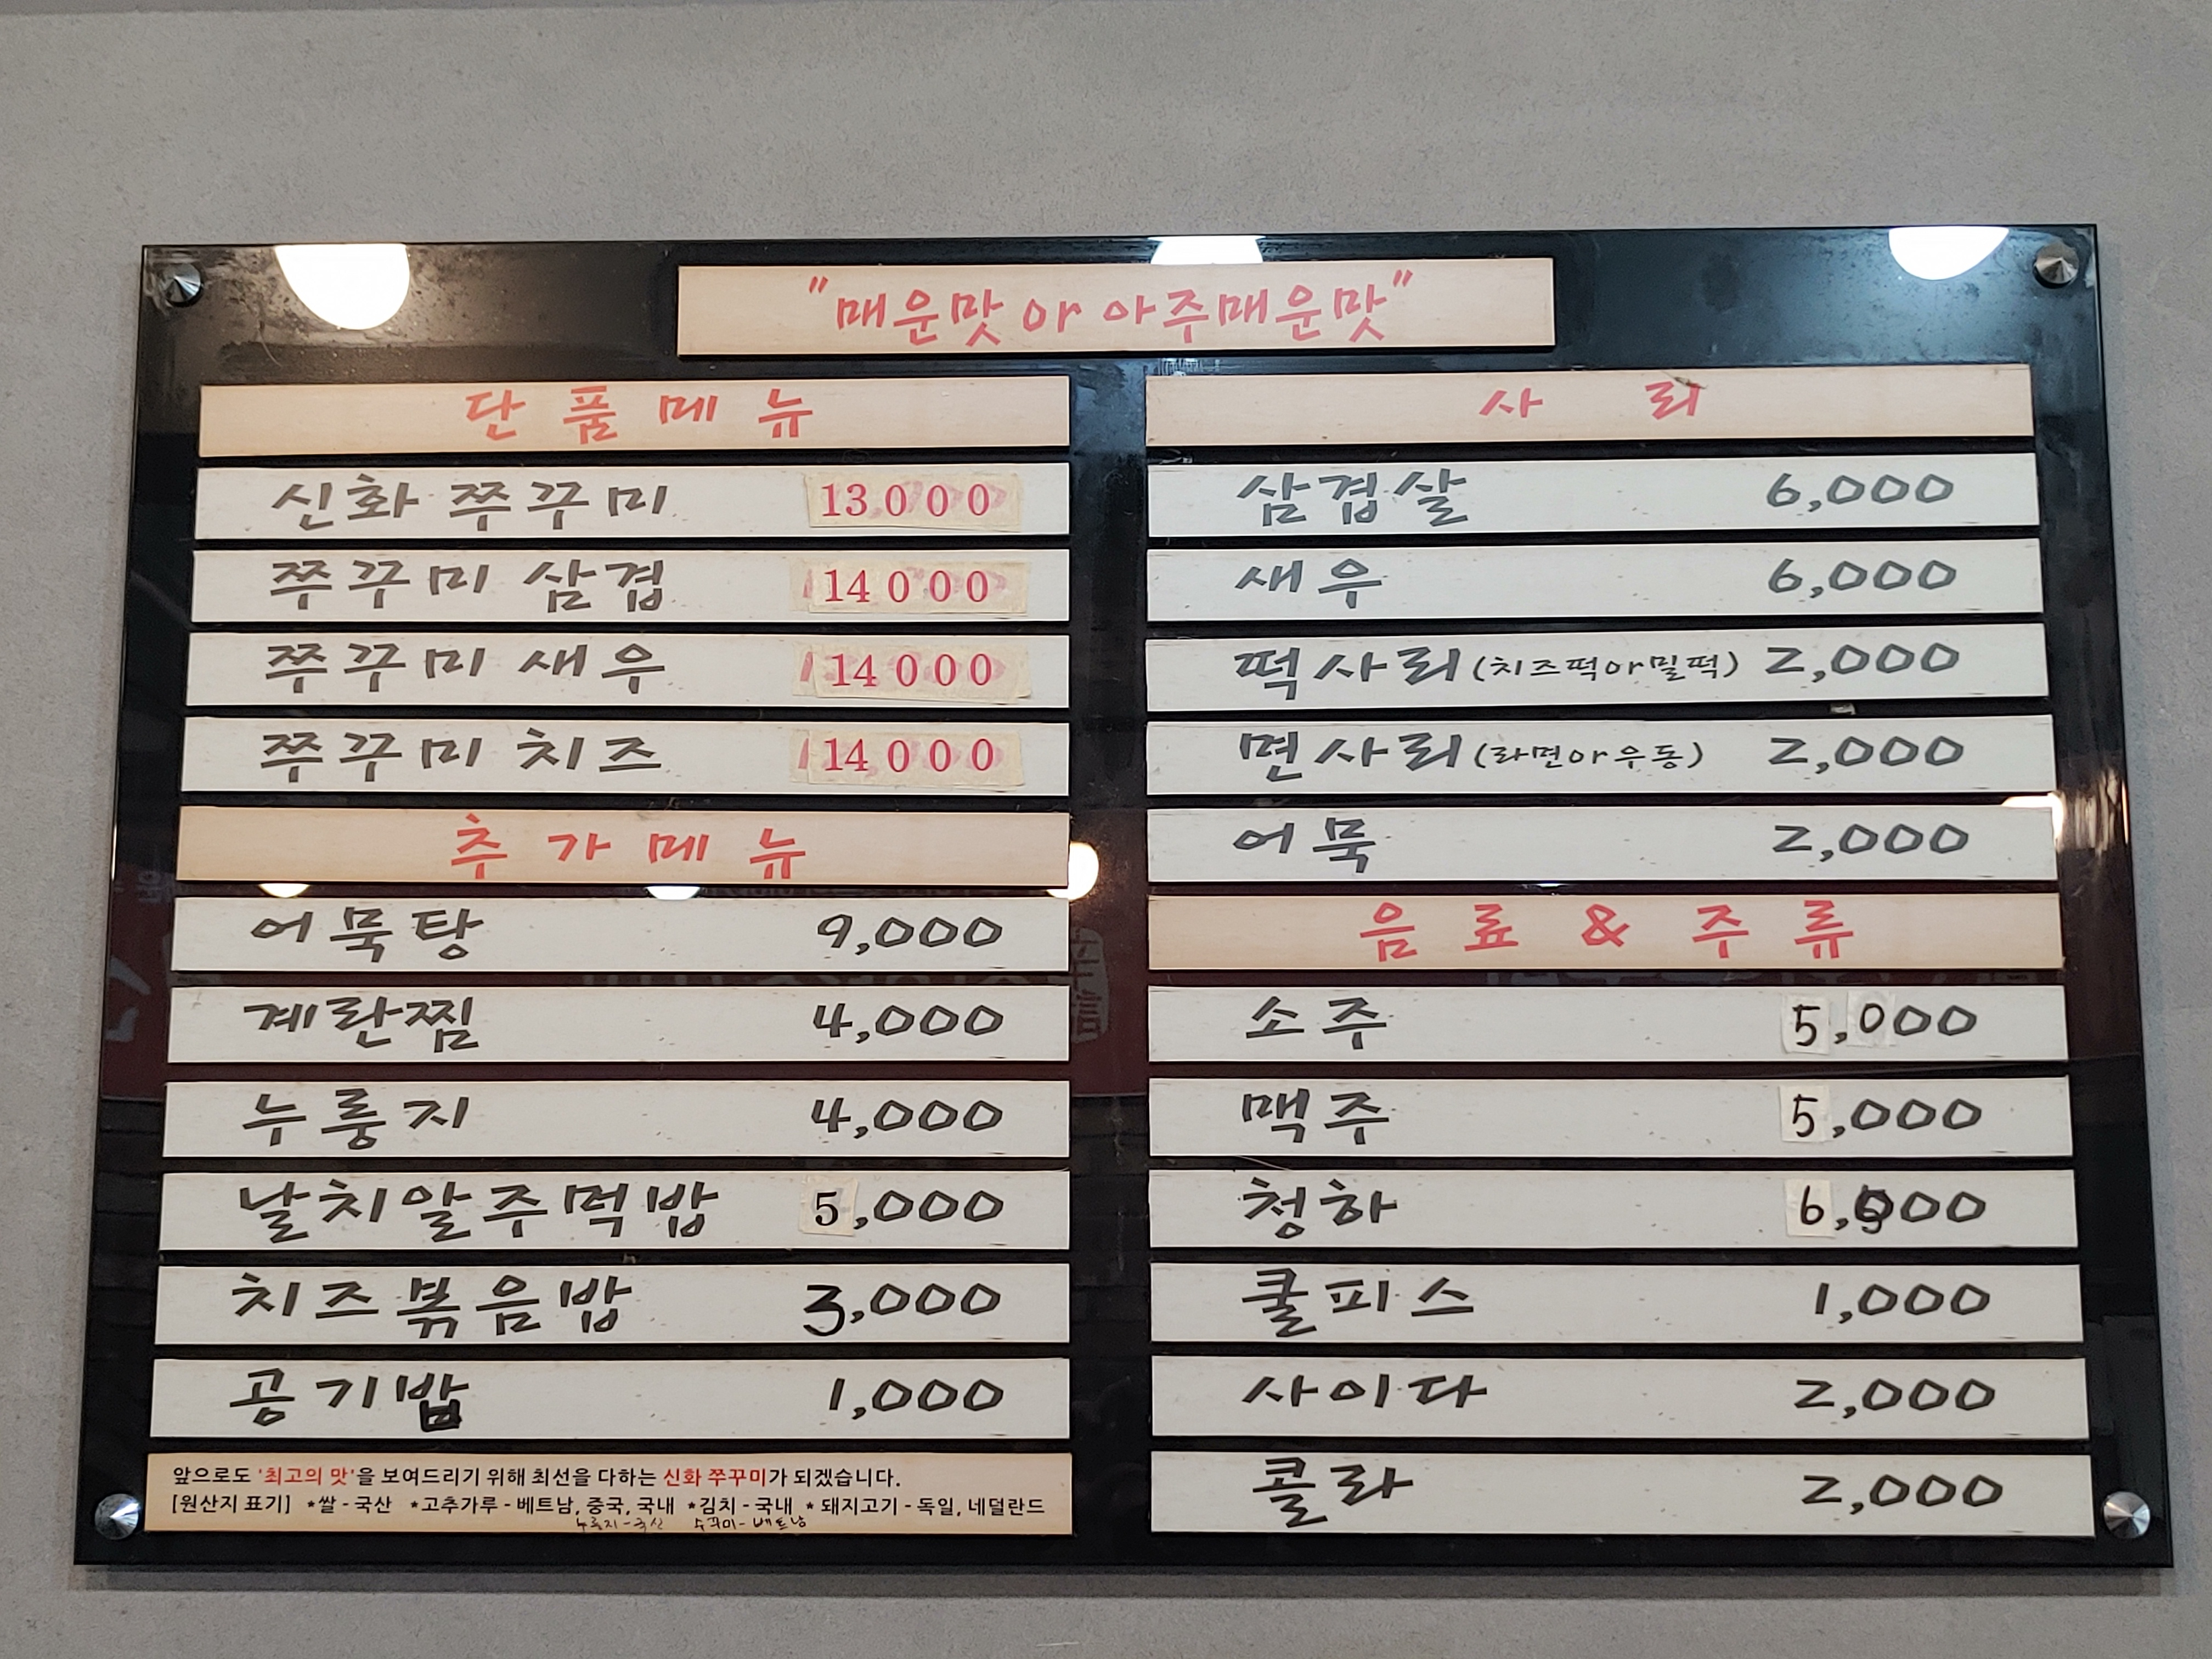 "매운맛 or 아주매운맛"
단품메뉴
신화 쭈꾸미 13,000
쭈꾸미 삼겹 14,000
쭈꾸미 새우 14,000
쭈꾸미 치즈 14,000
추가메뉴
어묵탕 9,000
계란찜 4,000
누룽지 4,000
날치알주먹밥 5,000
치즈볶음밥 3,000
공기밥 1,000
앞으로도 '최고의 맛'을 보여드리기 위해 최선을 다하는 신화 쭈꾸미가 되겠습니다.
[원산지 표기] *쌀 - 국산 *고추가루 - 베트남, 중국, 국내 *김치 - 국내 *돼지고기 - 독일, 네덜란드
누룽지-국산 쭈꾸미-베트남
사리
삼겹살 6,000
새우 6,000
떡사리(치즈떡or밀떡) 2,000
면사리(라면or우동) 2,000
어묵 2,000
음료 & 주류
소주 5,000
맥주 5,000
청하 6,000
쿨피스 1,000
사이다 2,000
콜라 2,000